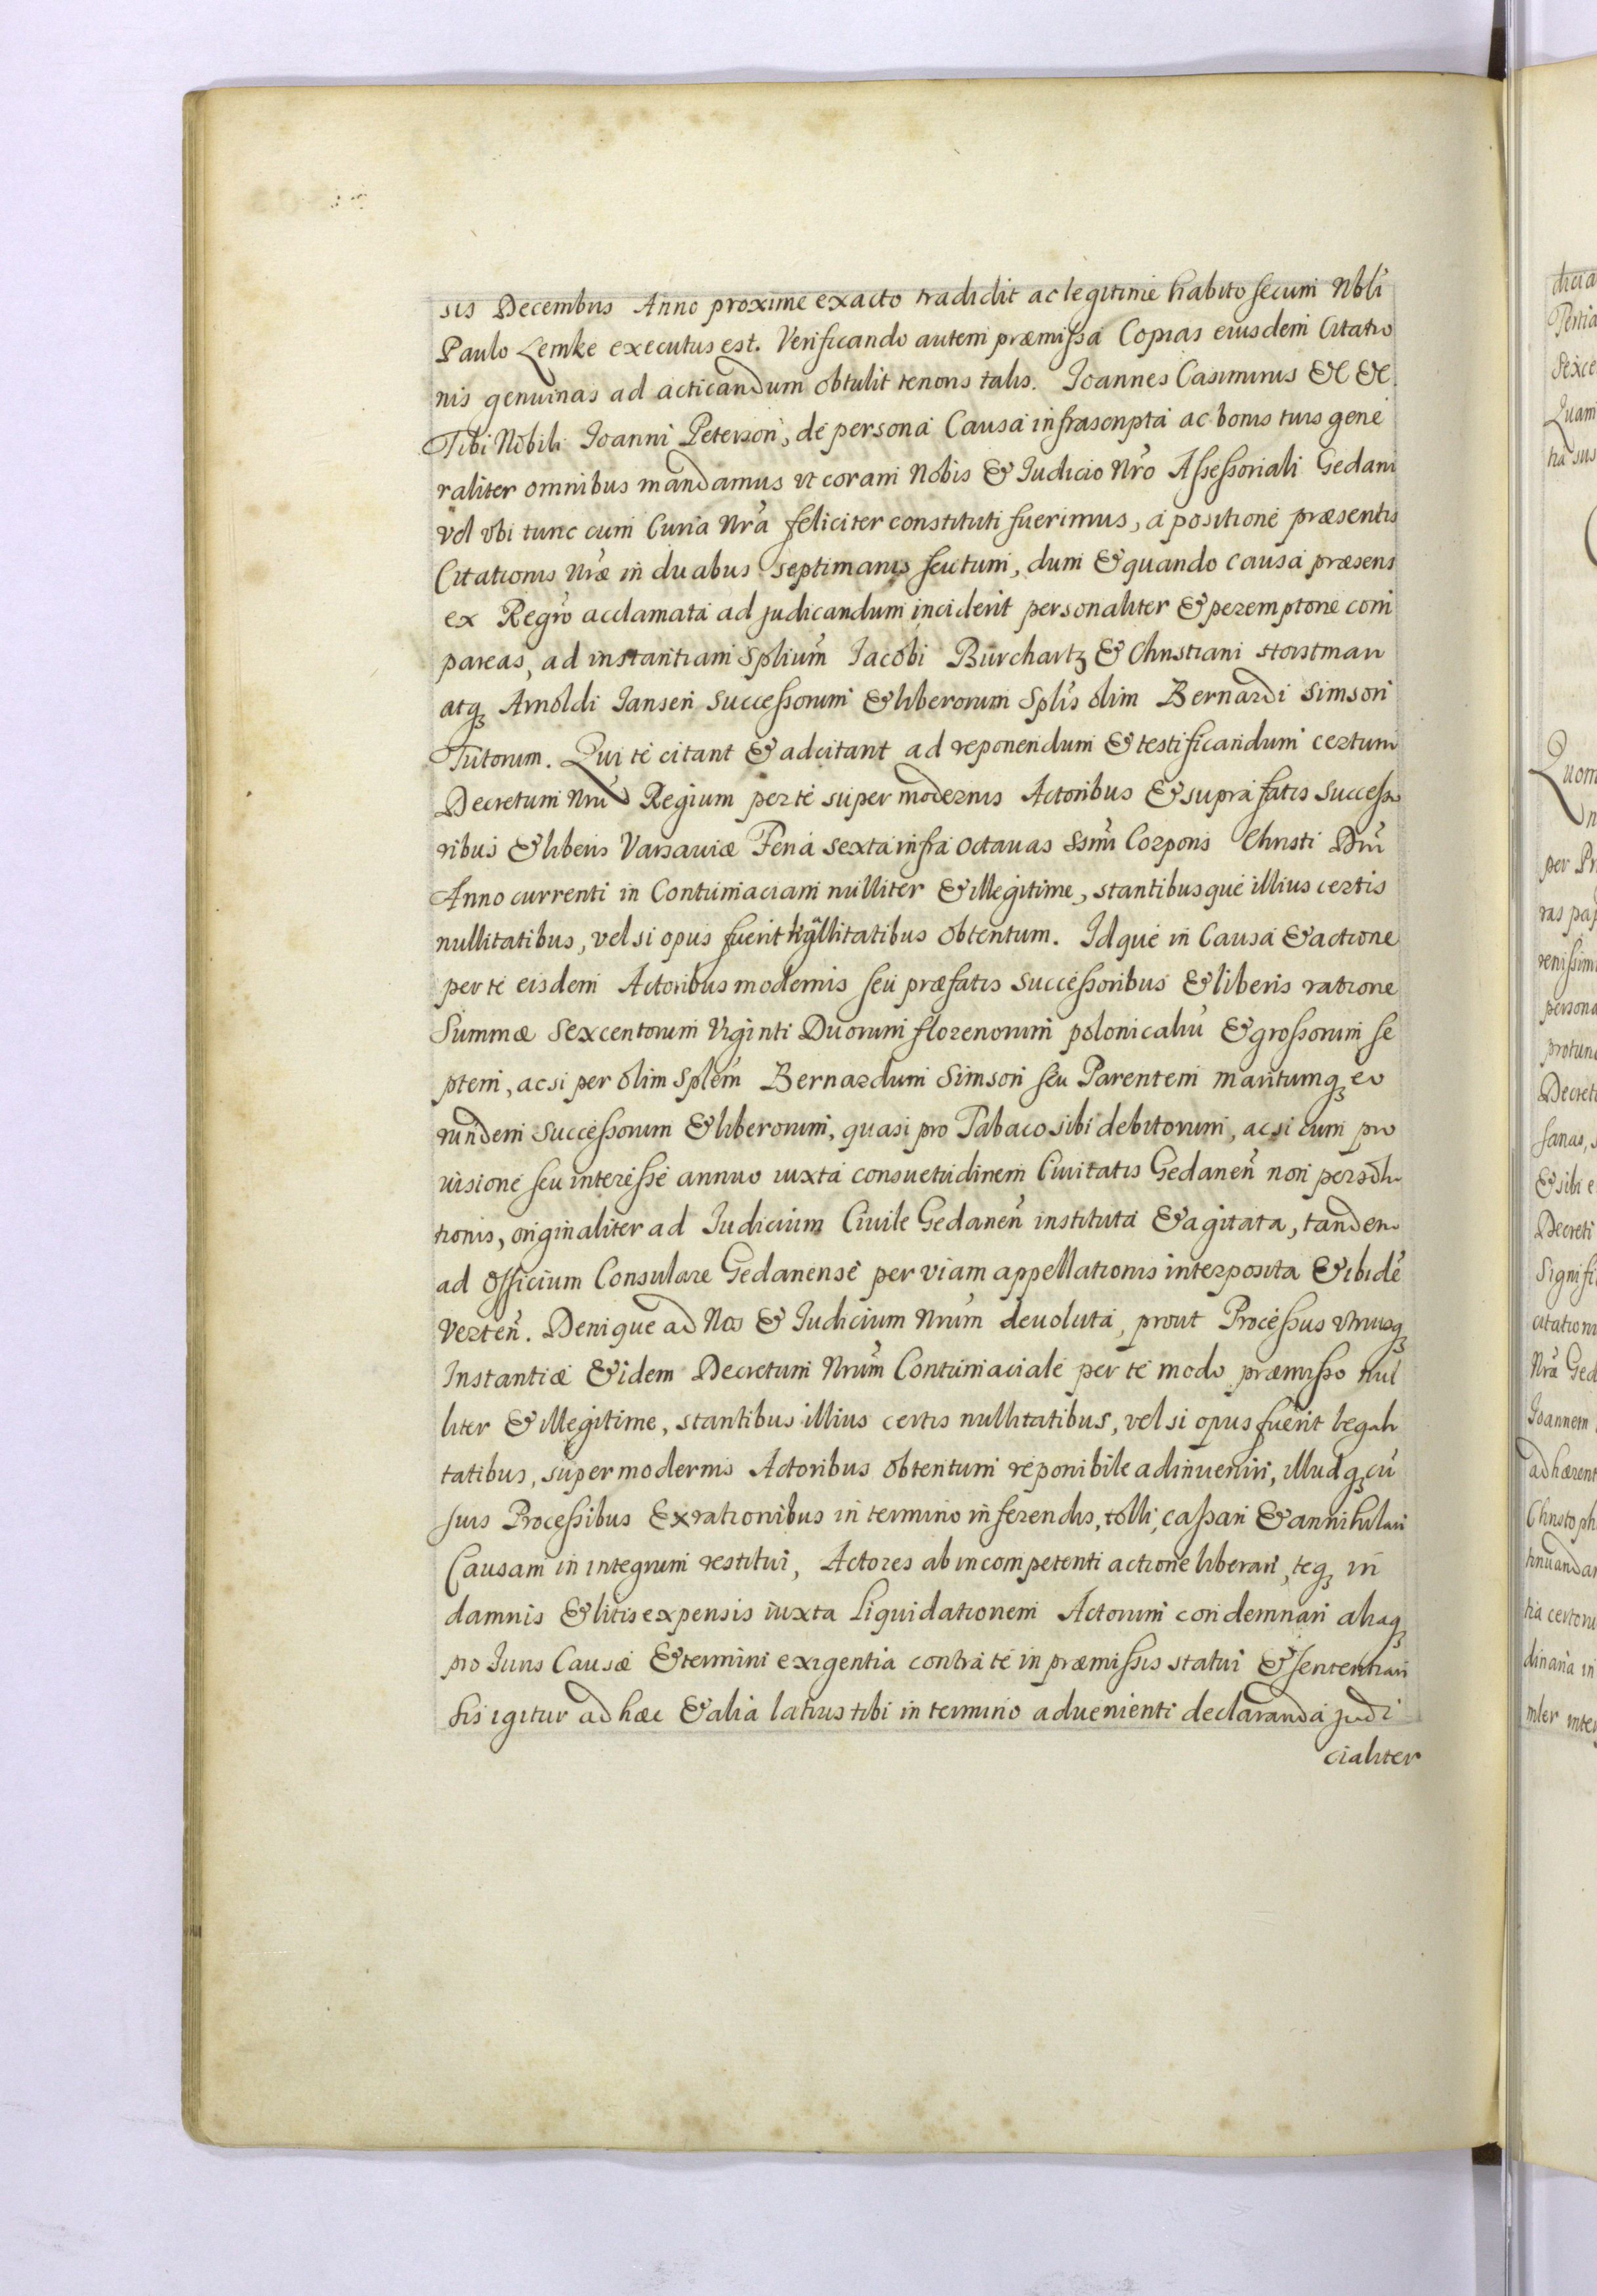 sis Decembris Anno proxime exacto tradidit ac legitime habito secum Nbli
Paulo Lemke executus est. Verificando autem præmissa Copias eiusdem Citatio
nis genuinas ad acticandum obtulit tenoris talis. Joannes Casimirus &c &c.
Tibi Nobili Joanni Peterson, de persona Causa infrascripta ac bonis tuis gene
raliter omnibus mandamus vt coram Nobis & Judicio Nrõ Assessoriali Gedani
vel vbi tunc cum Curia Nrã feliciter constituti fuerimus, a positione præsentis
Citationis Nræ in duabus septimanis seu tum, dum & quando causa præsens
ex Regrõ acclamata ad judicandum inciderit personaliter & peremptorie com
pareas, ad instantiam Splium Jacobi Burchartz & Christiani storstman
atq3 Arnoldi Jansen Successorum & liberorum Splis olim Bernardi Simson
Tutorum. Qui te citant & adcitant ad reponendum & testificandum certum
Decretum Nrũ Regium per te super modernis Actoribus & supra fatis Successo
ribus & liberis Varsauiæ Feria sexta infra octauas Ssmi Corporis Christi Dni
Anno currenti in Contumaciam nulliter & illegitime, stantibusque illius certis
nullitatibus, vel si opus fuerit obtentum. Idque in Causa & actione
per te eisdem Actoribus modernis seu præfatis Successoribus & liberis ratione
Summæ Sexcentorum Viginti Duorum florenorum polonicaliũ & grossorum se
ptem, acsi per olim Splem Bernardum Simson seu Parentem maritumq3 eo
rundem Successorum & liberorum, quasi pro Tabaco sibi debitorum, acsi cum pro
uisione seu interesse annuo iuxta consuetudinem Ciuitatis Gedanen̄ non persolu
tionis, originaliter ad Judicium Ciuile Gedanen̄ instituta & agitata, tandem
ad Officium Consulare Gedanense per viam appellationis interposita & ibidẽ
Verten̄. Denique ad Nos & Judicium Nrum deuoluta, prout Processus vtriusq3
Instantiæ & idem Decretum Nrum Contumaciale per te modo præmisso nul
liter & illegitime, stantibus illius certis nullitatibus, vel si opus fuerit legali
tatibus, super modernis Actoribus obtentum reponibile adinueniri, illudq3 cũ
suis Processibus Ex rationibus in termino inferendis, tolli, cassari & annihilari
Causam in integrum restitui, Actores ab incompetenti actione liberari, teq3 in
damnis & litis expensis iuxta Liquidationem Actorum condemnari aliaq3
pro Juris Causæ & termini exigentia contra te in præmissis statui & sententiari
Sis igitur ad hæc & alia latius tibi in termino aduenienti declaranda judi
cialiter